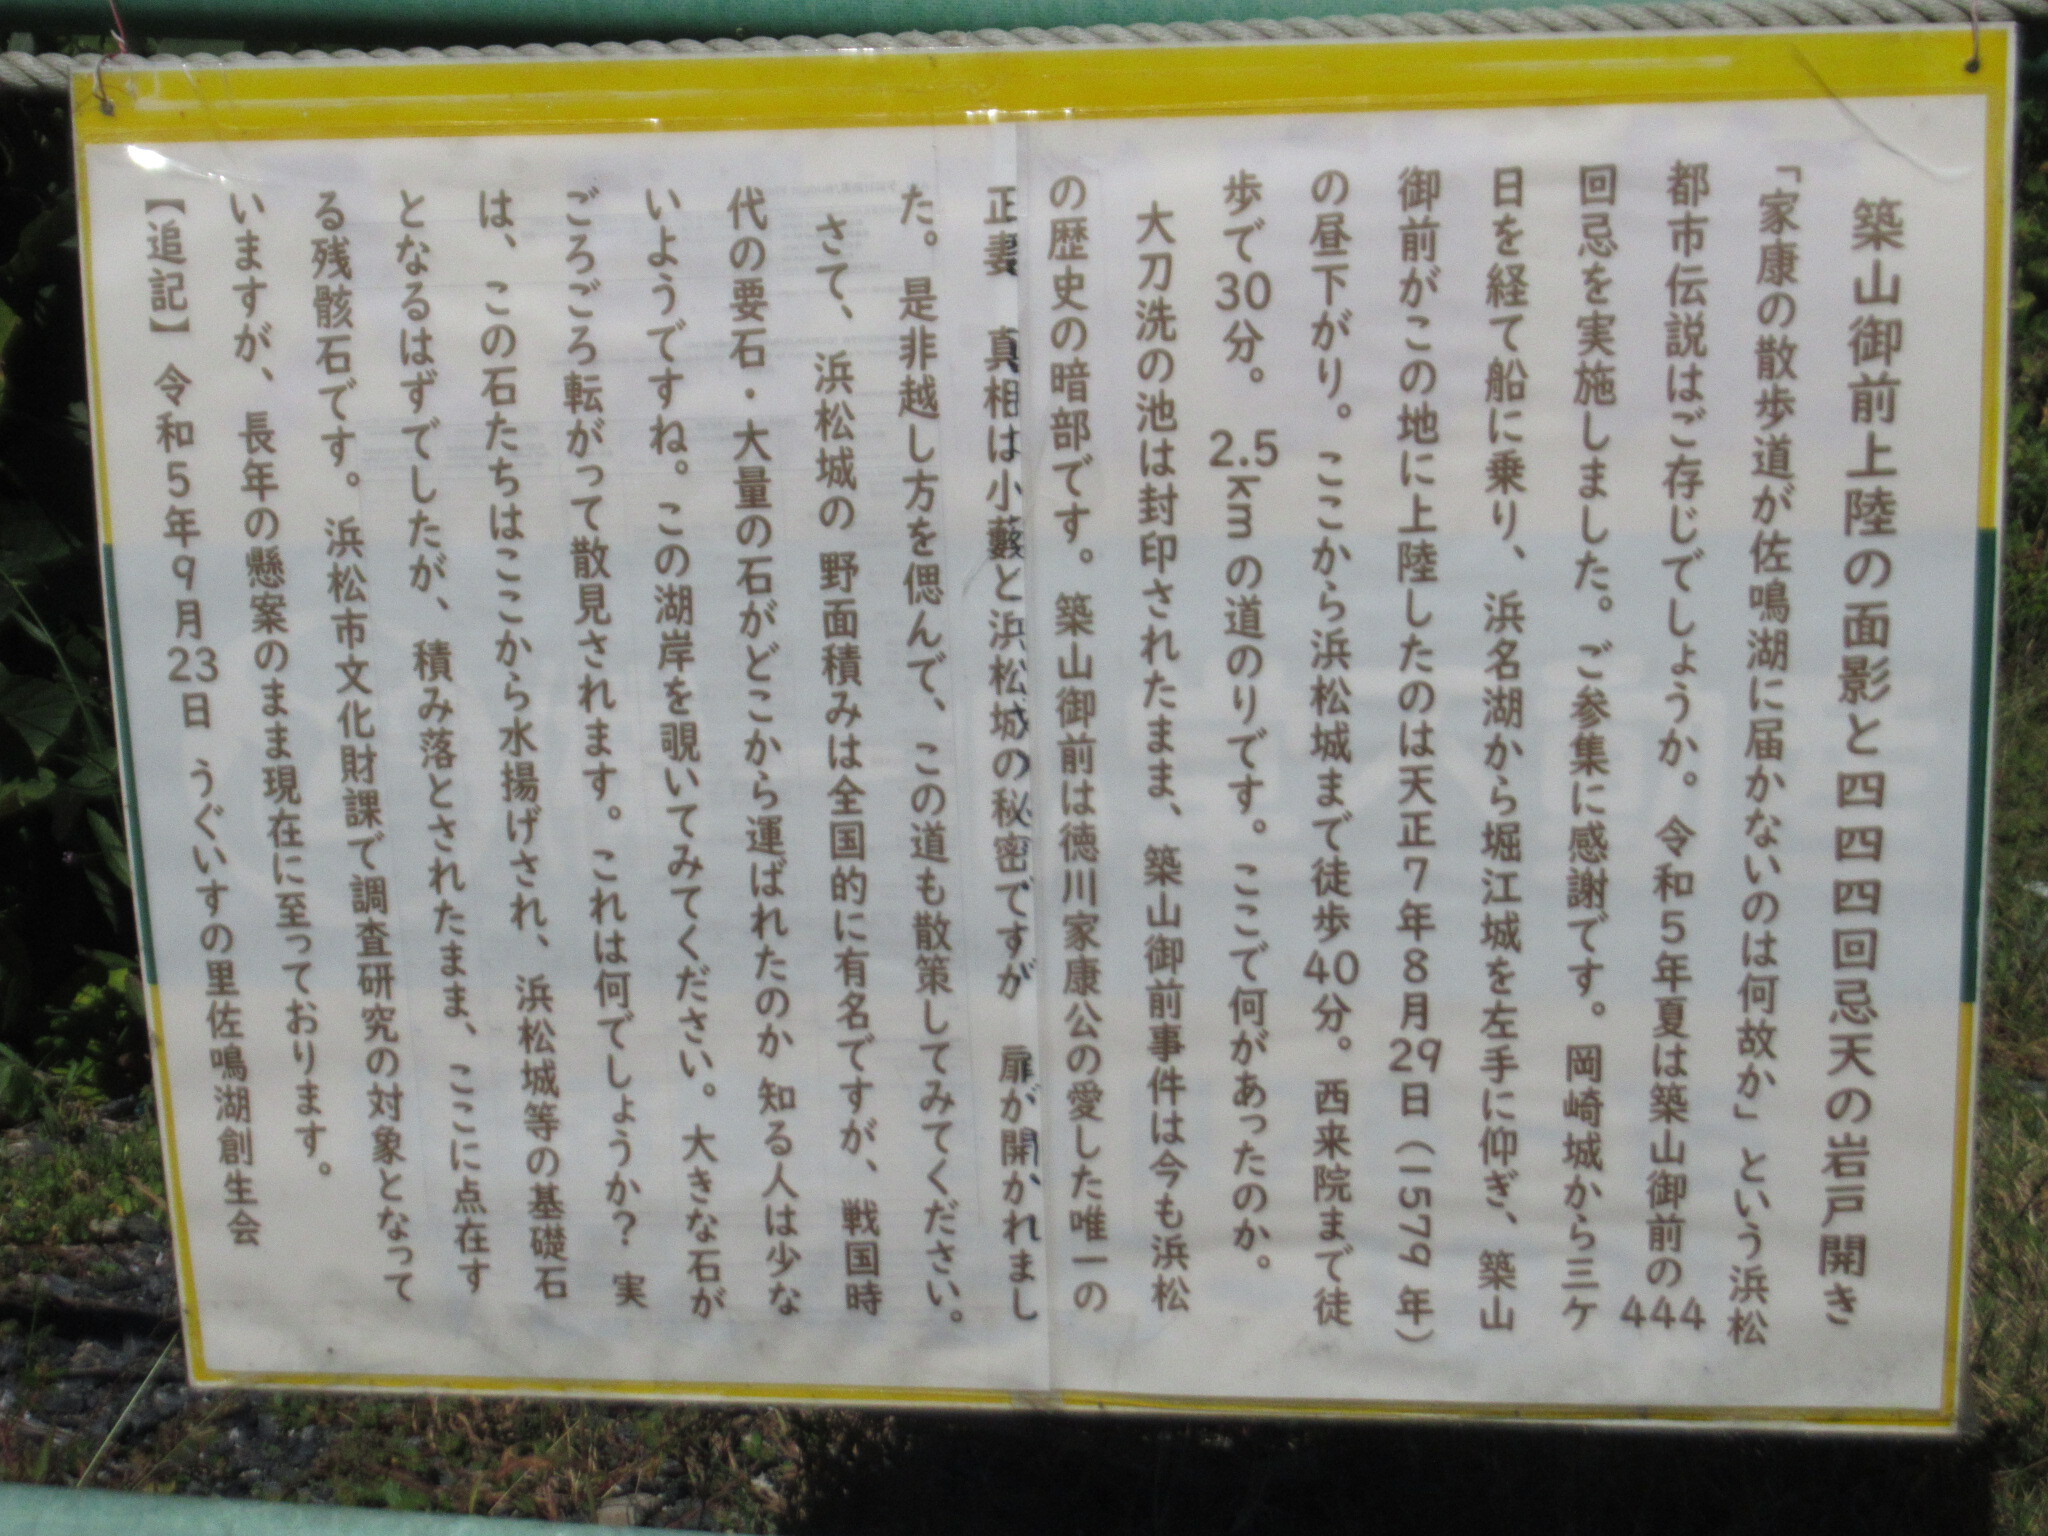 築山御前上陸の面影と四四四回忌天の岩戸開き
「家康の散歩道が佐鳴湖に届かないのは何故か」という浜松
都市伝説はご存じでしょうか。令和5年夏は築山御前の444
回忌を実施しました。ご参集に感謝です。岡崎城から三ケ
日を経て船に乗り、浜名湖から堀江城を左手に仰ぎ、築山
御前がこの地に上陸したのは天正7年8月29日（1579年）
の昼下がり。ここから浜松城まで徒歩40分。西来院まで徒
歩で30分。2.5kmの道のりです。ここで何があったのか。
大刀洗の池は封印されたまま、築山御前事件は今も浜松
の歴史の暗部です。築山御前は徳川家康公の愛した唯一の
正妻 真相は小藪と浜松城の秘密ですが 扉が開かれまし
た。是非越し方を偲んで、この道も散策してみてください。
さて、浜松城の 野面積みは全国的に有名ですが、戦国時
代の要石・大量の石がどこから運ばれたのか 知る人は少な
いようですね。この湖岸を覗いてみてください。大きな石が
ごろごろ転がって散見されます。これは何でしょうか？実
は、この石たちはここから水揚げされ、浜松城等の基礎石
となるはずでしたが、積み落とされたまま、ここに点在す
る残骸石です。浜松市文化財課で調査研究の対象となって
いますが、長年の懸案のまま現在に至っております。
【追記】令和5年9月23日 うぐいすの里佐鳴湖創生会